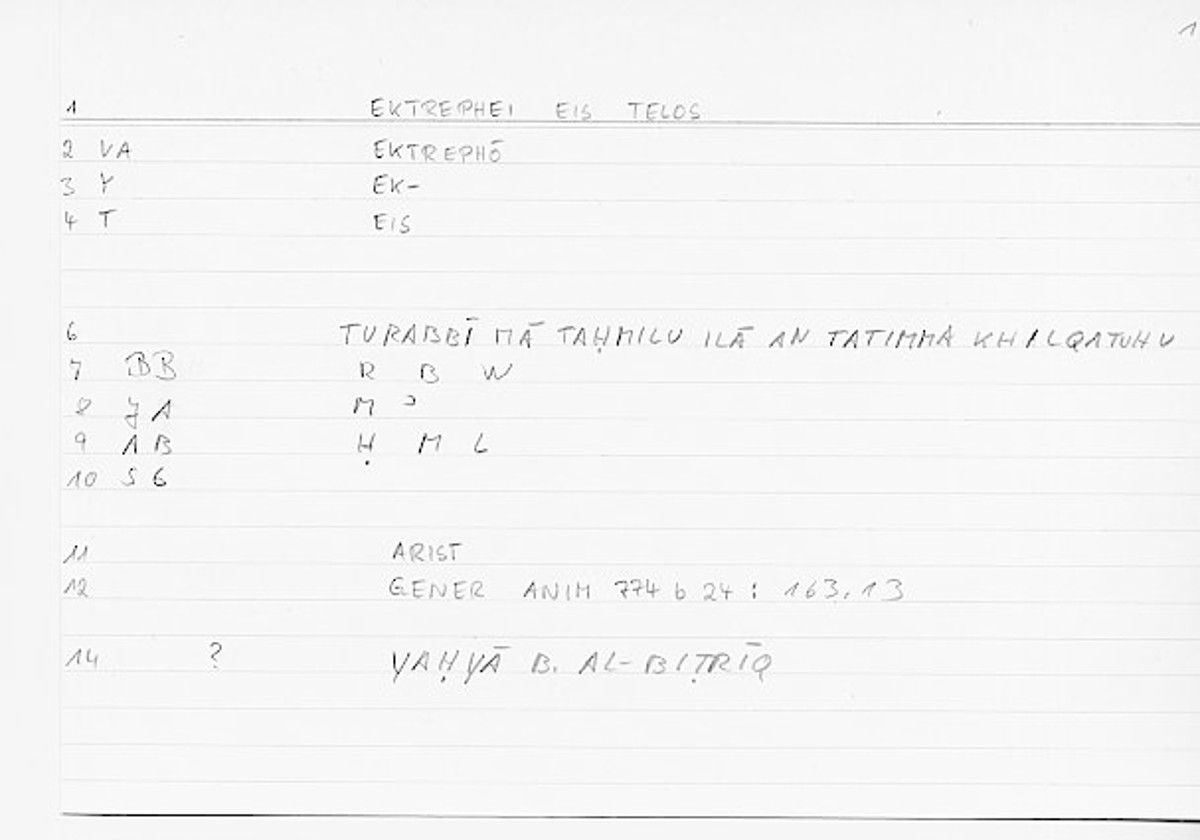 1
1 EKTREPHEI EIS TELOS
2 VA EKTREPHŌ
3 Y EK-
4 T EIS
6 TURABBĪ MĀ TAḤMILU ILĀ AN TATIMMA KHILQATUHU
7 BB R B W
8 JA M ʾ
9 AB Ḥ M L
10 S6
11 ARIST
12 GENER ANIM 774 b 24 : 163,13
14 ? YAḤYĀ B. AL-BIṬRĪQ